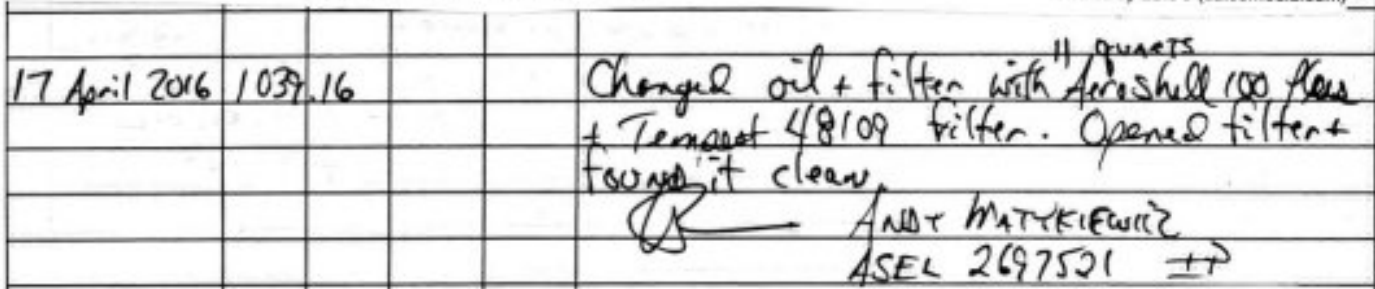 11 quarts
17 April 2016 1039.16 Changed oil + filter with Aeroshell 100 plus
+ Tempest 48109 filter. Opened filter +
found it clean.
ANDY MATYKIEWICZ
ASEL 2697521